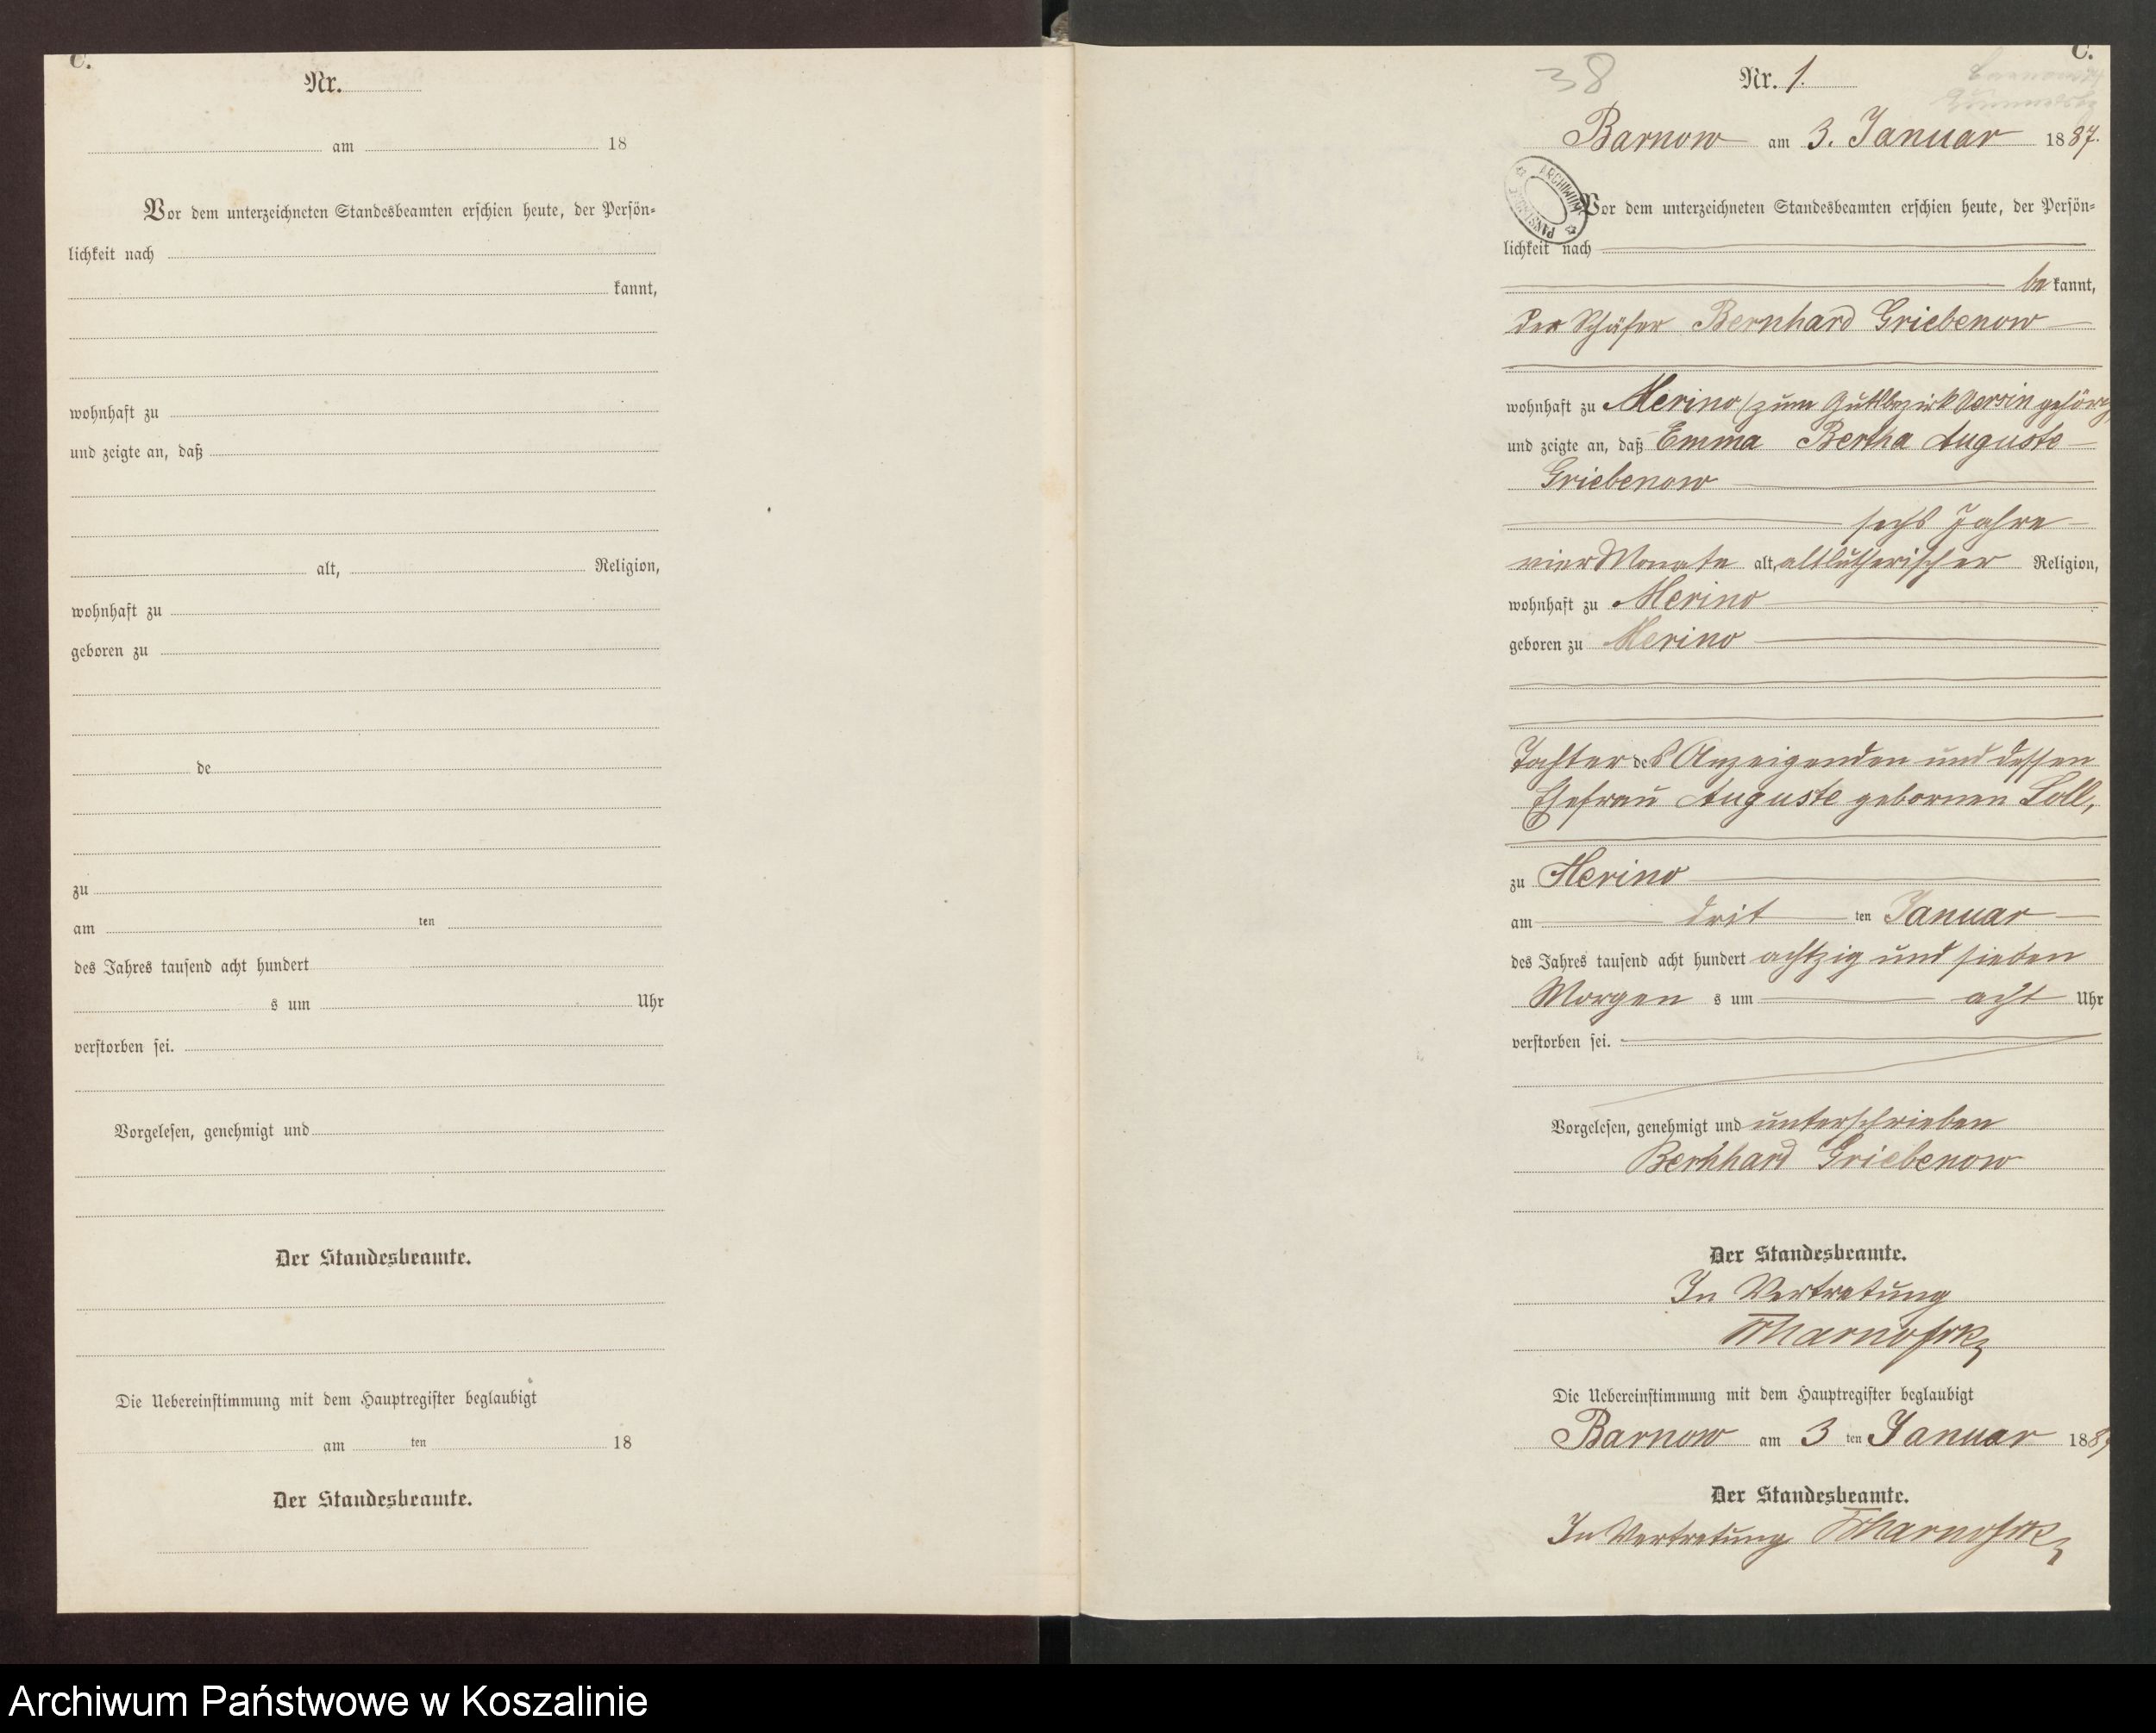 C.
Nr.
am 18
Vor dem unterzeichneten Standesbeamten erschien heute, der Persön-
lichkeit nach
kannt,
wohnhaft zu
und zeigte an, daß
alt, Religion,
wohnhaft zu
geboren zu
de
zu
am ten
des Jahres tausend acht hundert
s um Uhr
verstorben sei.
Vorgelesen, genehmigt und
Der Standesbeamte.
Die Uebereinstimmung mit dem Hauptregister beglaubigt
am ten 18
Der Standesbeamte.
C.
38
Nr. 1.
Barnow am 3. Januar 1887.
ARCHIWUM PAŃSTWOWE
Vor dem unterzeichneten Standesbeamten erschien heute, der Persön-
lichkeit nach
be kannt,
der Schäfer Bernhard Griebenow
wohnhaft zu Merino (zum Gutsbezirk Versin gehörig
und zeigte an, daß Emma Bertha Auguste
Griebenow
sechs Jahre
vier Monate alt, altlutherischer Religion,
wohnhaft zu Merino
geboren zu Merino
Tochter des Anzeigenden und dessen
Ehefrau Auguste gebornen Loll,
zu Merino
am drit ten Januar
des Jahres tausend acht hundert achtzig und sieben
Morgen s um acht Uhr
verstorben sei.
Vorgelesen, genehmigt und unterschrieben
Bernhard Griebenow
Der Standesbeamte.
In Vertretung
Die Uebereinstimmung mit dem Hauptregister beglaubigt
Barnow am 3 ten Januar 1887
Der Standesbeamte.
In Vertretung
Archiwum Państwowe w Koszalinie